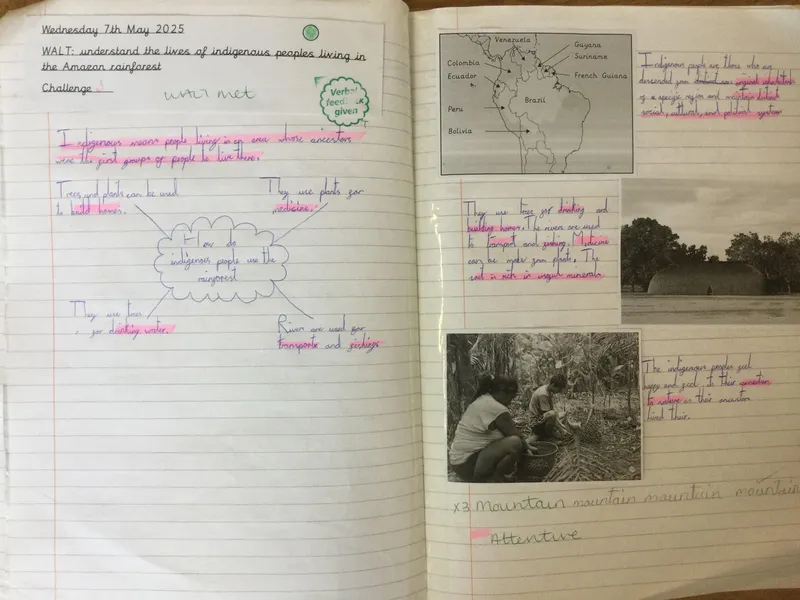 Wednesday 7th May 2025
WALT: understand the lives of indigenous peoples living in
the Amazon rainforest
Challenge
WALT met
Verbal
feedback
given
Indigenous means people living in an area whose ancestors
were the first groups of people to live there.
Trees and plants can be used
to build homes.
They use plants for
medicine.
How do
indigenous people use the
rainforest
They use trees
for drinking water.
River are used for
transports and fishings
Venezuela
Guyana
Suriname
French Guiana
Colombia
Ecuador
Brazil
Peru
Bolivia
Indigenous people are those who are
descended from
of a specific region and maintain distinct
social, cultural, and political system
They use trees for drinking and
building homes. The rivers are used
to transport and fishing. Medicine
can be make from plants. The
soil is rich in minerals
The indigenous peoples feel
happy and to their
to nature as their ancestors
lived their.
x3 Mountain mountain mountain mountain
Attentive